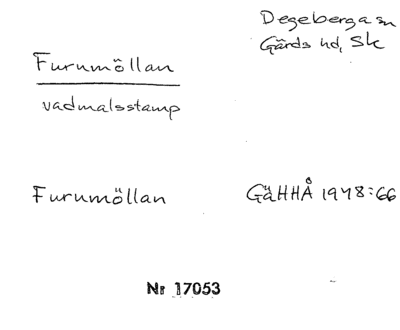 Degeberga sn
Gärds hd, Sk
Furumöllan
vadmalsstamp
Furumöllan
GäHHÅ 1948:66
Nr 17053